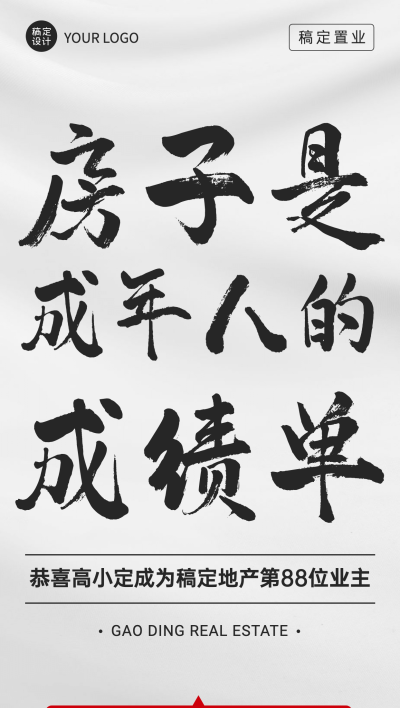 稿定
设计
YOUR LOGO
稿定置业
房子是
成年人的
成绩单
恭喜高小定成为稿定地产第88位业主
• GAO DING REAL ESTATE •